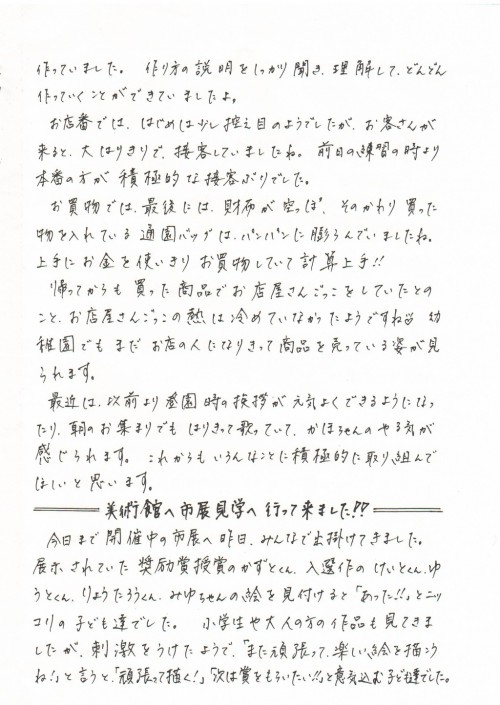 作っていました。 作り方の説明をしっかり聞き、理解して、どんどん
作っていくことができていましたよ。
お店番では、はじめは少し控え目のようでしたが、お客さんが
来ると、大はりきりで、接客していましたね。 前日の練習の時より
本番の方が積極的な接客ぶりでした。
お買物では、最後には、財布が空っぽ、そのかわり買った
物を入れている通園バッグは、パンパンに膨らんでいましたね。
上手にお金を使いきりお買物していて計算上手!!
帰ってからも買った商品でお店屋さんごっこをしていたとの
こと、お店屋さんごっこの熱は冷めていなかったようですね 幼
稚園でもまだお店の人になりきって商品を売っている姿が見
られます。
最近は、以前より登園時の挨拶が元気よくできるようになっ
たり、朝のお集まりでもはりきって歌っていて、かほちゃんのやる気が
感じられます。 これからもいろんなことに積極的に取り組んで
ほしいと思います。
美術館へ市展見学へ行って来ました!?
今日まで開催中の市展へ昨日、みんなで出掛けてきました。
展示されていた奨励賞授賞のかずとくん、入選作のけいとくん、ゆ
うとくん、りょうたろうくん、みゆちゃんの絵を見付けると「あった!!」とニッ
コリの子ども達でした。 小学生や大人の方の作品も見てきま
したが、刺激をうけたようで、「また頑張って、楽しい絵を描こう
ね!」と言うと、「頑張って描く!」「次は賞をもらいたい!!」と意気込む子ども達でした。